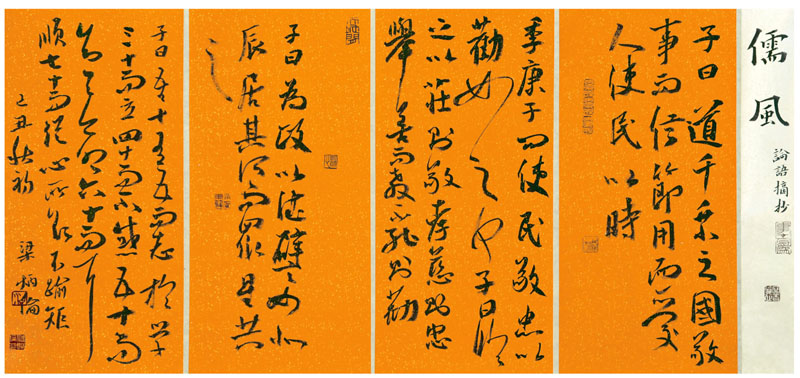 儒風
論語摘抄
子曰道千乘之國敬
事而信節用而愛
人使民以時
季康子問使民敬忠以
勸如之何子曰臨
之以莊則敬孝慈則忠
舉善而教不能則勸
子曰為政以德譬如北
辰居其所而眾星共
之
子曰吾十有五而志於學
三十而立四十而不惑五十而
知天命六十而耳
順七十而從心所欲不踰矩
己丑秋初
梁炳倫